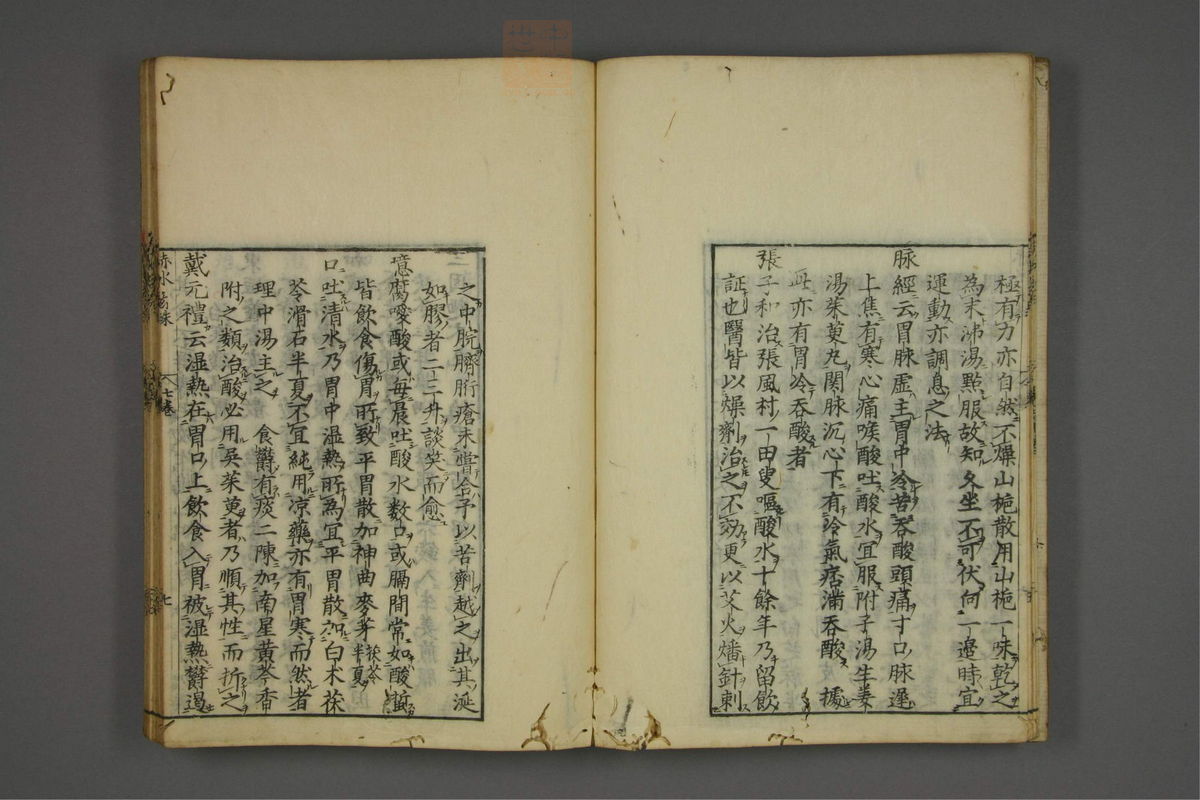 極有力亦自然不燥山梔散用山梔一味乾之
為末沸湯點服故知久坐不可伏向一邊時宜
運動亦調息之法
脉經云胃脉虛主胃中冷苦吞酸頭痛寸口脉遲
上焦有寒心痛喉酸吐酸水宜服附子湯生姜
湯茱萸丸關脉沉心下有冷氣痞滿吞酸 據
此亦有胃冷吞酸者
張子和治張風村一田叟嘔酸水十餘年乃留飲
証也醫皆以燥劑治之不効更以艾火燔針刺
之中脘臍胻瘡未嘗合予以苦劑越之出其涎
如膠者二三升談笑而愈
噫腐噯酸或每晨吐酸水数口或膈間常如酸蜇
皆飲食傷胃所致平胃散加神曲麥芽茯苓半夏
口吐清水乃胃中湿熱所為宜平胃散加白朮茯
苓滑石半夏不宜純用凉藥亦有胃寒而然者
理中湯主之 食欝有痰二陳加南星黄芩香
附之類治酸必用吳茱萸者乃順其性而折之
戴元禮云湿熱在胃口上飲食入胃被湿熱欝遏
赤水玄珠 七卷 七